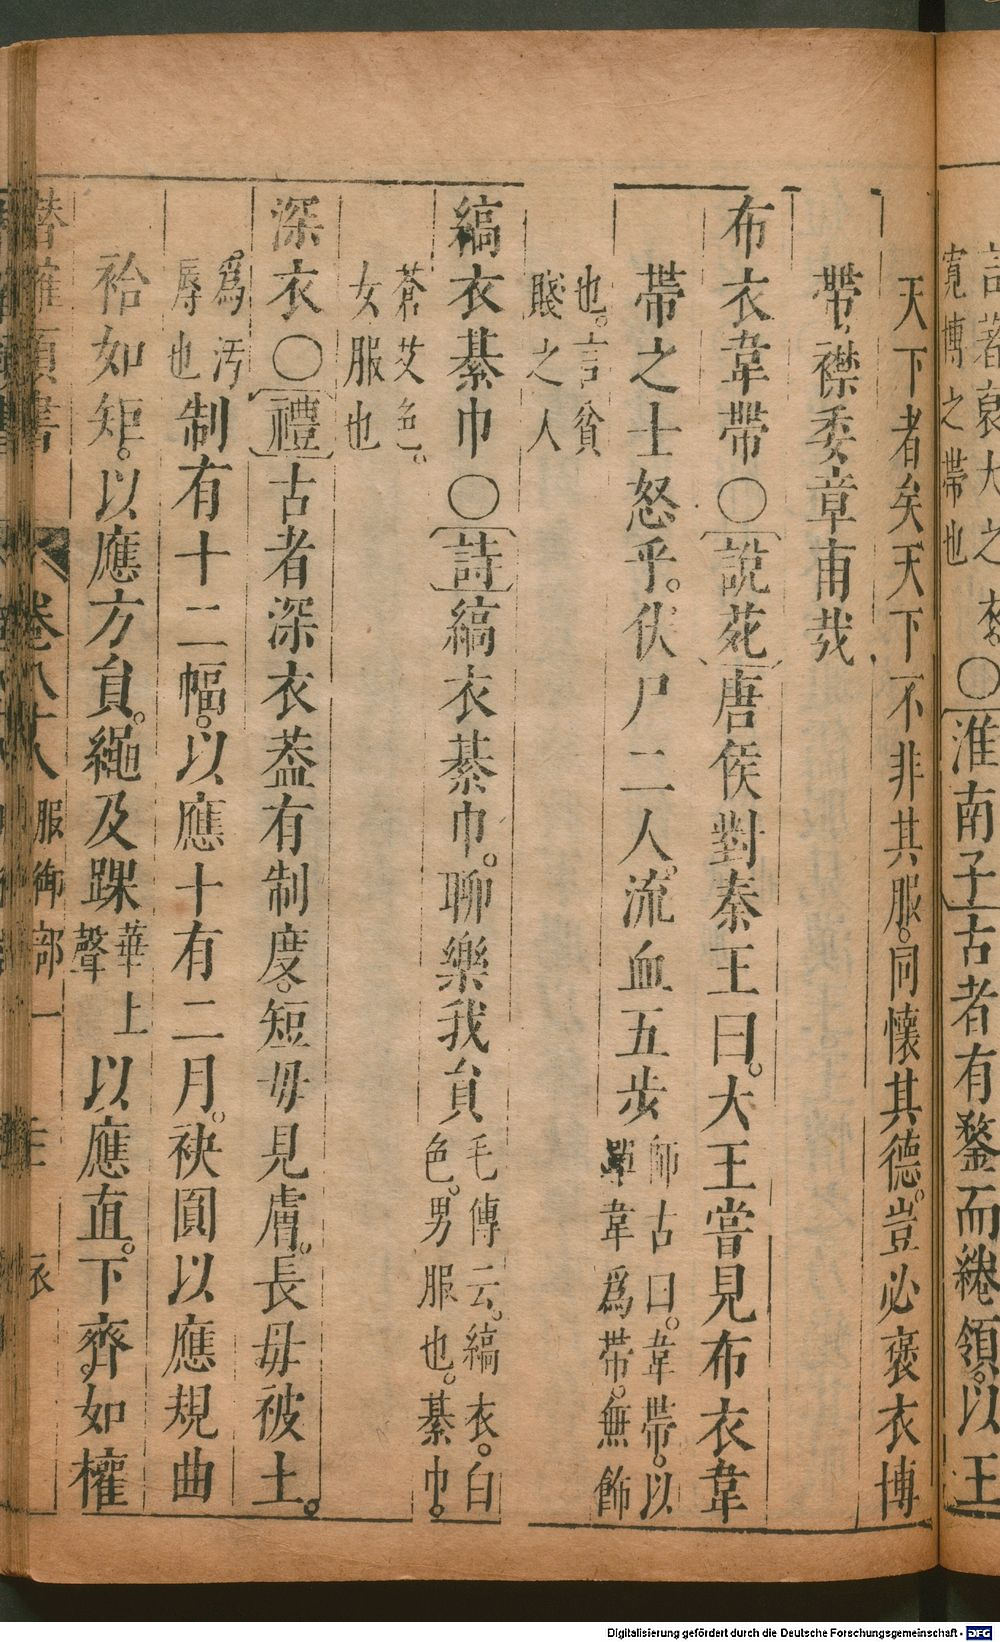 ○淮南子古者有鍪而綣領以王
寬博之帶也
天下者矣天下不非其服。同懷其德。豈必褒衣博
帶、襟委章甫哉
布衣韋帶○說苑唐侯對秦王曰。大王嘗見布衣韋
帶之士怒乎。伏尸二人。流血五步師古曰。韋帶。以
單韋爲帶。無飾
也。言貧
賤之人
縞衣綦巾○詩縞衣綦巾。聊樂我貟毛傳云。縞衣。白
色。男服也。綦巾。
蒼艾色。
女服也
深衣○禮古者深衣葢有制度。短毋見膚。長毋被土。
爲汚
辱也制有十二幅。以應十有二月。袂圓以應規曲
袷如矩。以應方貟。繩及踝華上
聲以應直。下齊。如權
潛確類書 卷八十八 服御部一 衣
Digitalisierung gefördert durch die Deutsche Forschungsgemeinschaft - DFG